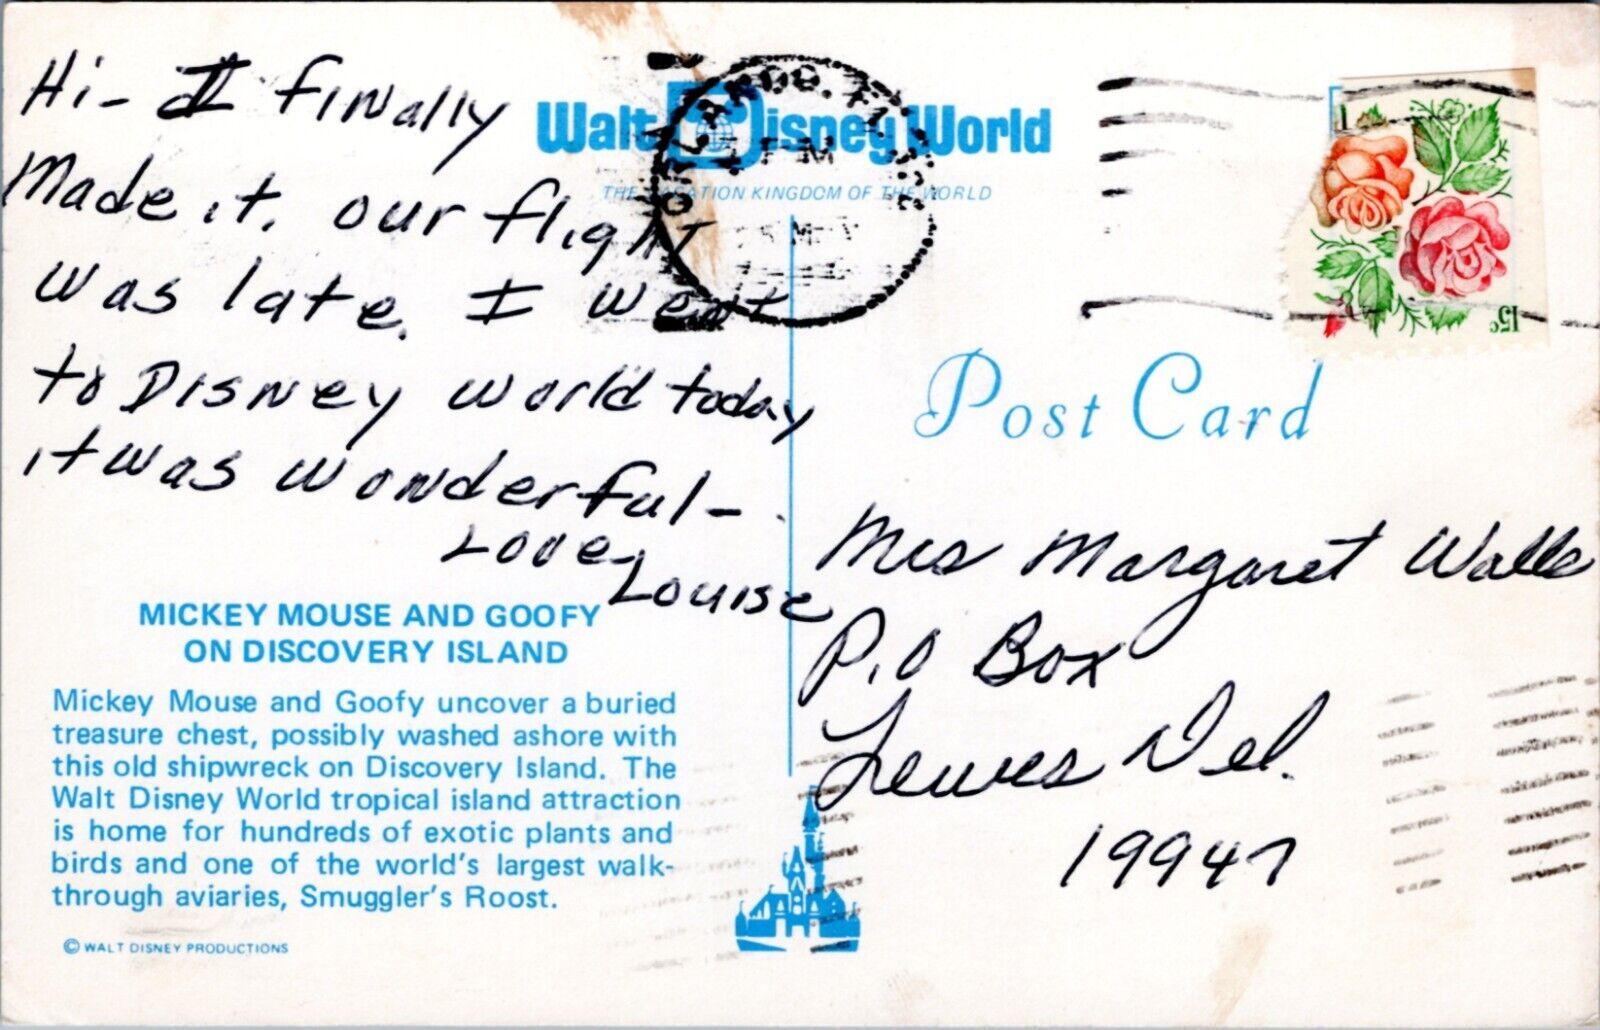 Hi- I finally
Made it. our flight
was late. I went
to Disney world today
it was wonderful-
Love
Louise
MICKEY MOUSE AND GOOFY
ON DISCOVERY ISLAND
Mickey Mouse and Goofy uncover a buried
treasure chest, possibly washed ashore with
this old shipwreck on Discovery Island. The
Walt Disney World tropical island attraction
is home for hundreds of exotic plants and
birds and one of the world's largest walk-
through aviaries, Smuggler's Roost.
© WALT DISNEY PRODUCTIONS
Walt Disney World
THE VACATION KINGDOM OF THE WORLD
ORLANDO, FL
PM
15c
Post Card
Mrs Margaret Walls
P.O Box
Lewes Del.
19947